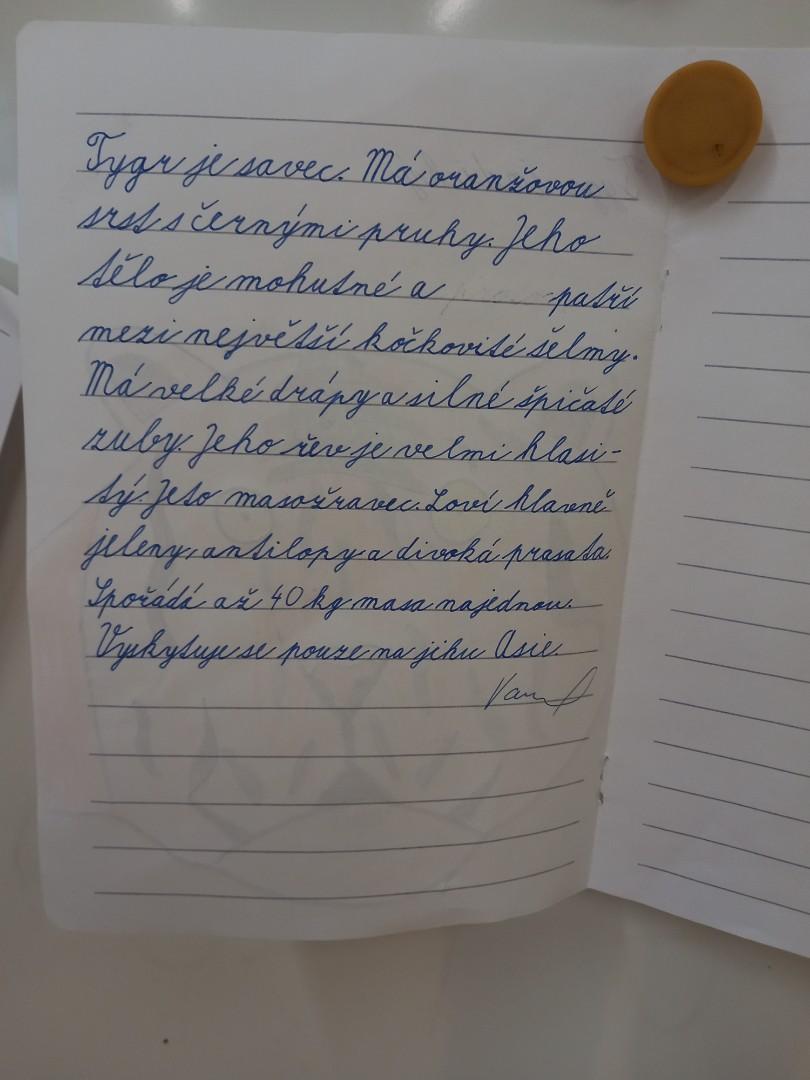 Tygr je savec. Má oranžovou
srst s černými pruhy. Jeho
tělo je mohutné a patří
mezi největší kočkovité šelmy.
Má velké drápy a silné špičaté
zuby. Jeho řev je velmi hlasi-
tý. Je to masožravec. Loví hlavně
jeleny, antilopy a divoká prasata.
Spořádá až 40 kg masa najednou.
Vyskytuje se pouze na jihu Asie.